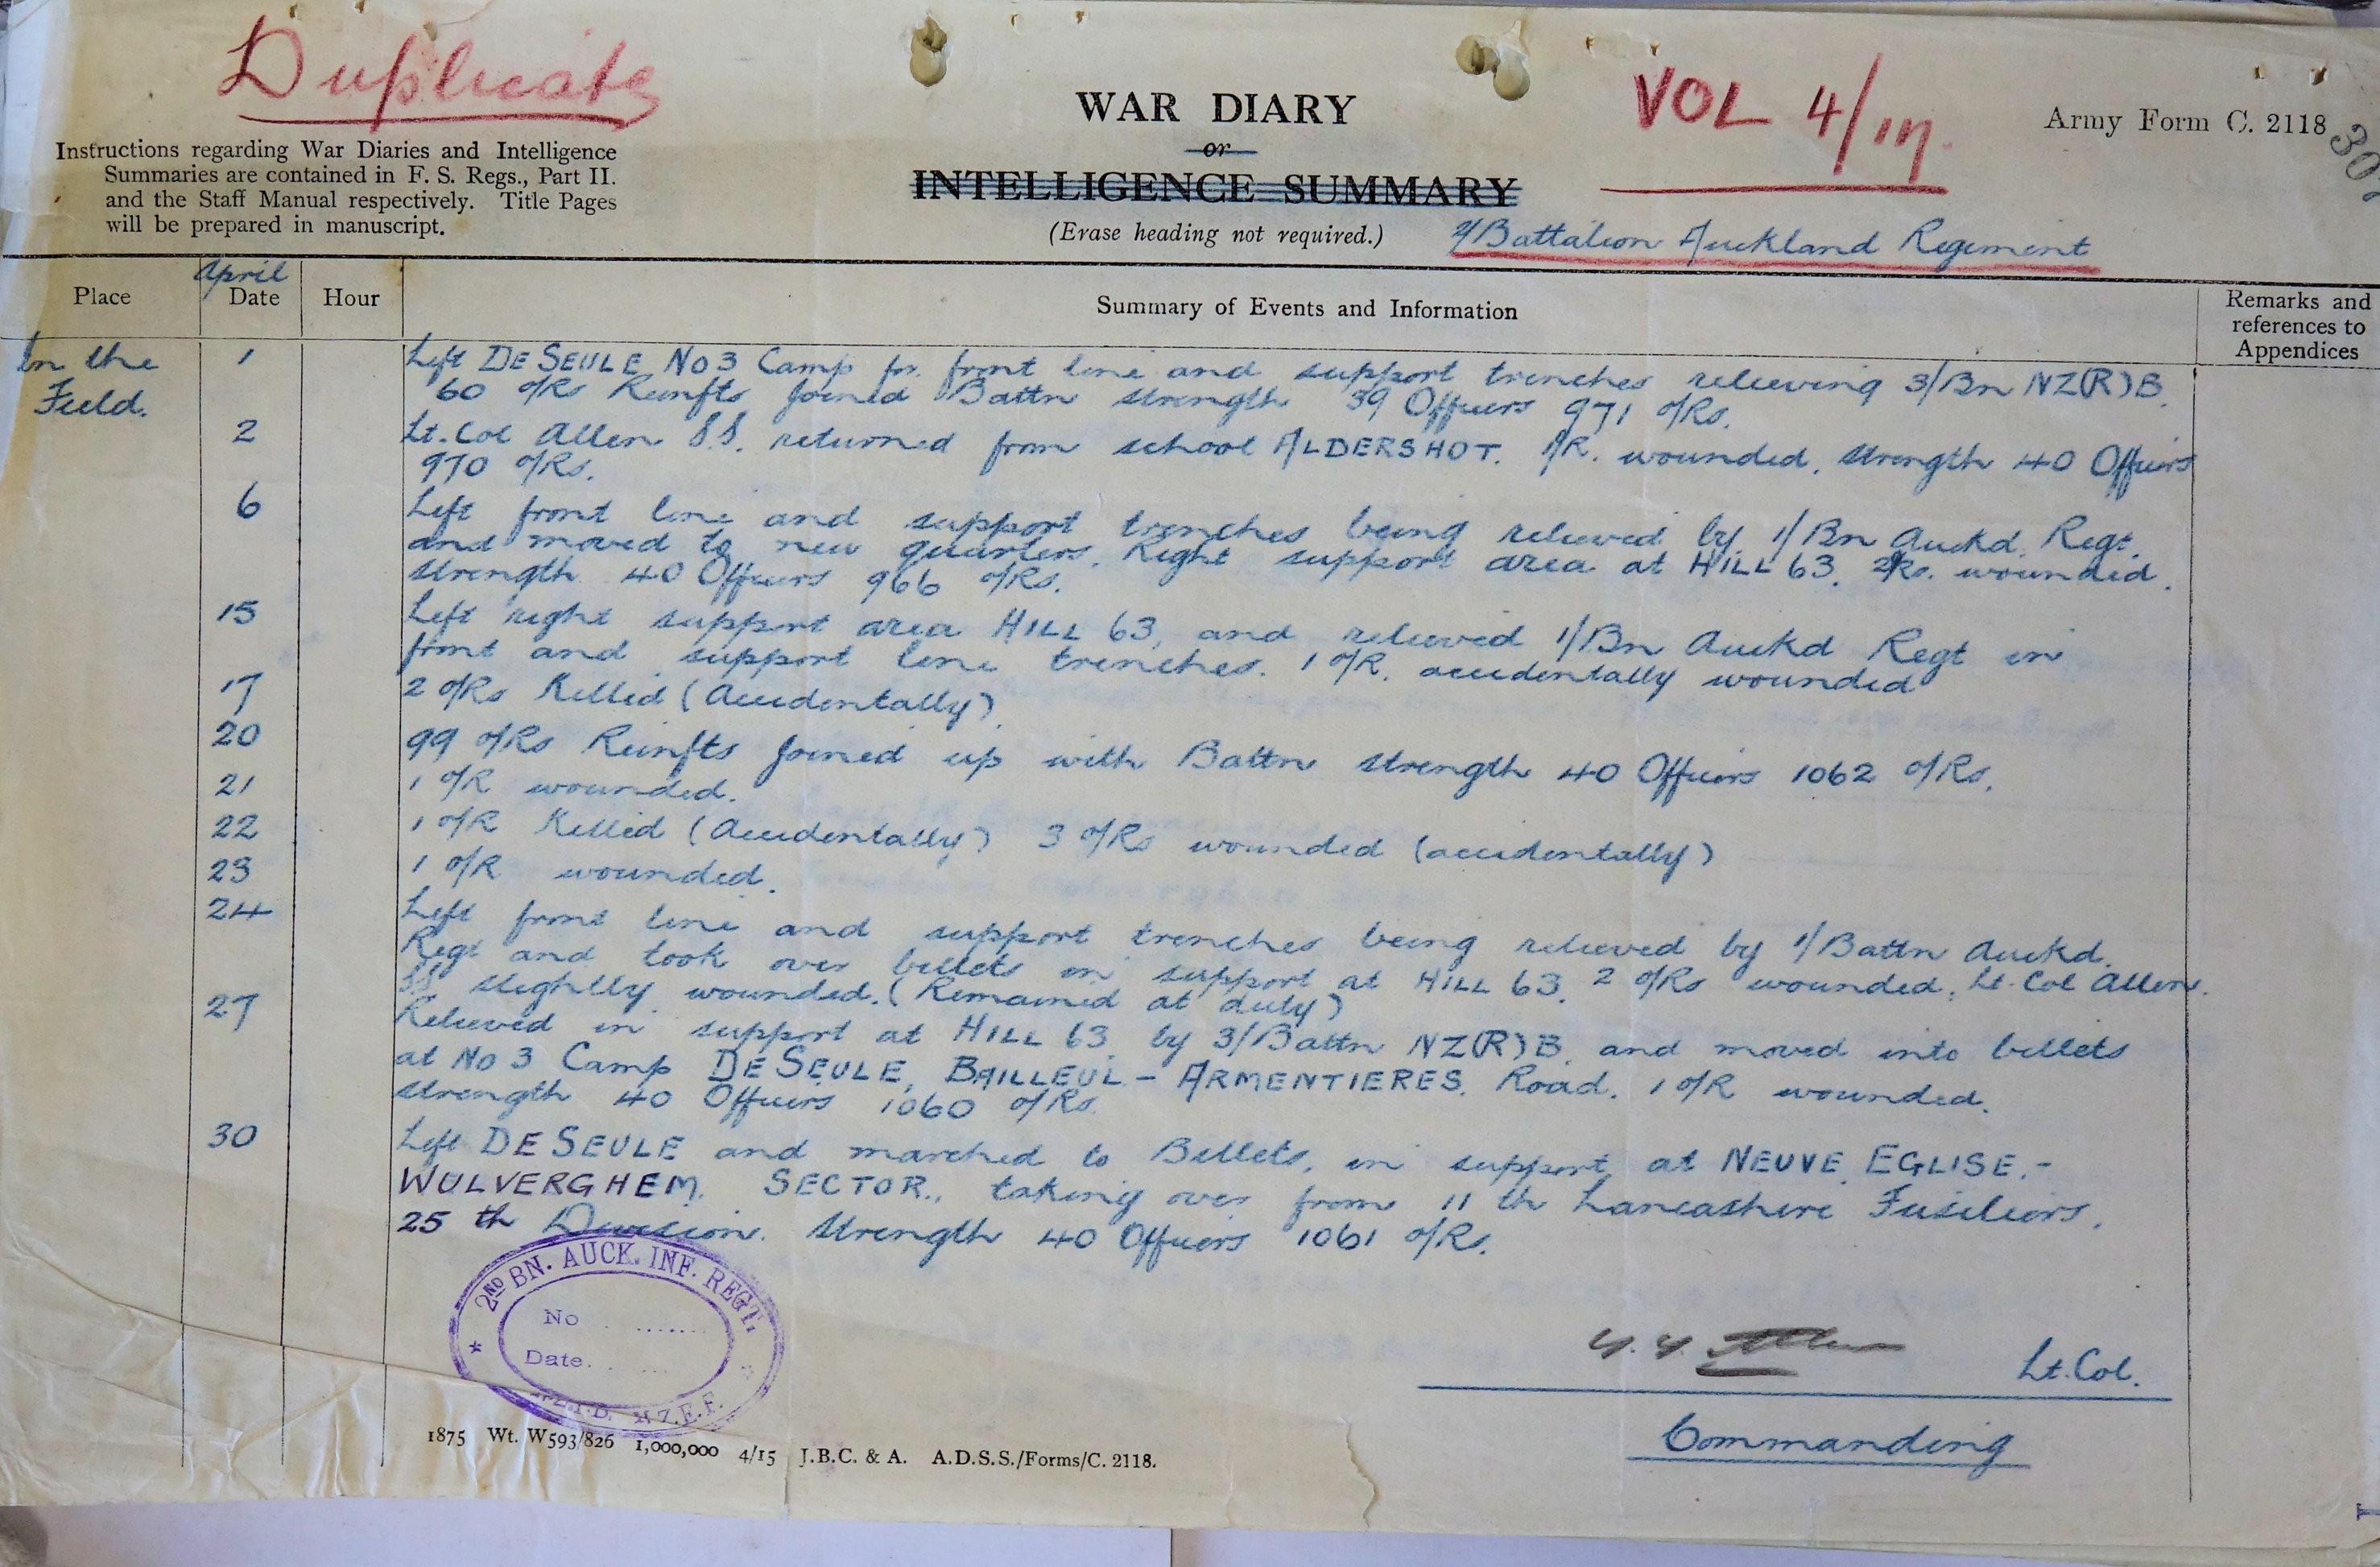 Duplicate
Instructions regarding War Diaries and Intelligence
Summaries are contained in F. S. Regs., Part II.
and the Staff Manual respectively. Title Pages
will be prepared in manuscript.
WAR DIARY
or
INTELLIGENCE SUMMARY
(Erase heading not required.)
VOL 4/17.
Army Form C. 2118
2/Battalion Auckland Regiment
Place
April
Date
Hour
Summary of Events and Information
Remarks and
references to
Appendices
In the
Field.
1 Left DE SEULE No 3 Camp for front line and support trenches relieving 3/Bn NZ(R)B.
60 O/Rs Reinfts joined Battn strength 39 Officers 971 O/Rs.
2 Lt. Col Allen S.S. returned from school ALDERSHOT. 1/R. wounded. Strength 40 Officers
970 O/Rs.
6 Left front line and support trenches being relieved by 1/Bn Auckd. Regt.
and moved to new quarters. Right support area at HILL 63. 2/Rs. wounded.
strength 40 Officers 966 O/Rs.
15 Left right support area HILL 63, and relieved 1/Bn Auckd Regt in
front and support line trenches. 1 O/R. accidentally wounded
17 2 O/Rs Killed (Accidentally).
20 99 O/Rs Reinfts joined up with Battn strength 40 Officers 1062 O/Rs.
21 1 O/R wounded.
22 1 O/R Killed (Accidentally) 3 O/Rs wounded (accidentally)
23 1 O/R wounded.
24 Left front line and support trenches being relieved by 1/Battn Auckd.
Regt and took over billets in support at HILL 63. 2 O/Rs wounded, Lt. Col Allen.
S.S. slightly wounded. (Remained at duty)
27 Relieved in support at HILL 63 by 3/Battn NZ(R)B. and moved into billets
at No 3 Camp DE SEULE, BAILLEUL - ARMENTIERES. Road. 1 O/R wounded.
strength 40 Officers 1060 O/Rs.
30 Left DE SEULE and marched to Billets, in support, at NEUVE EGLISE. -
WULVERGHEM. SECTOR., taking over from 11 th Lancashire Fusiliers,
25 th Division. Strength 40 Officers 1061 O/Rs.
2ND BN. AUCK. INF. REGT.
No
Date.
N.Z.E.F.
Allen Lt. Col.
Commanding
1875 Wt. W593/826 1,000,000 4/15 J.B.C. & A. A.D.S.S./Forms/C. 2118.